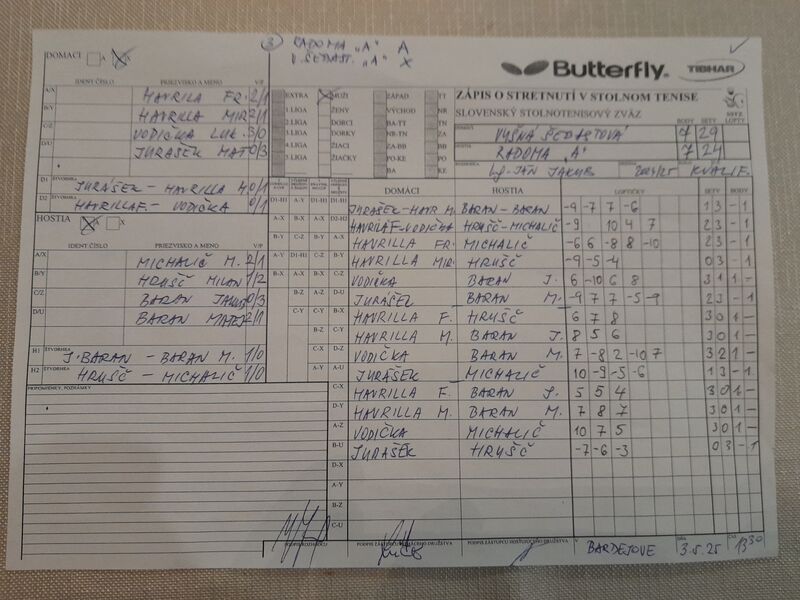 3 RADOMA "A" A
V. ŠEBAST. "A" X
DOMACI A X
Butterfly. TIBHAR
IDENT ČÍSLO PRIEZVISKO A MENO V/P
A/X HAVRILA FR. 2/1
B/Y HAVRILLA MIR 2/1
C/Z VODIČKA LUK. 3/0
D/U JURAŠEK MAT 0/3
EXTRA MUŽI ZÁPAD TT
1.LIGA ŽENY VÝCHOD NR
2.LIGA DORCI BA-TT TN
3.LIGA DORKY NR-TN ZA
4.LIGA ŽIACI ZA-BB BB
5.LIGA ŽIAČKY PO-KE PO
BA KE
ZÁPIS O STRETNUTÍ V STOLNOM TENISE
SLOVENSKÝ STOLNOTENISOVÝ ZVÄZ
BODY SETY LOPTY
VYŠNÁ ŠEBASTOVÁ 7 29
RADOMA "A" 7 24
JÁN JAKUB 2024/25 KVALIF.
D1 ŠTVORHRA JURÁŠEK - HAVRILLA M. 0/1
D2 ŠTVORHRA HAVRILLA F. - VODIČKA 0/1
HOSTIA X
IDENT ČÍSLO PRIEZVISKO A MENO V/P
A/X MICHALIČ M. 2/1
B/Y HRUŠČ MILAN 1/2
C/Z BARAN JAKUB 0/3
D/U BARAN MATEJ 2/1
H1 ŠTVORHRA J. BARAN - BARAN M. 1/0
H2 ŠTVORHRA HRUŠČ - MICHALIČ 1/0
PRIPOMIENKY, POZNÁMKY
DOMÁCI HOSTIA LOPTIČKY SETY BODY
D1-H1 JURAŠEK-HAVR M. BARAN-BARAN -9 -7 7 -6 1 3 - 1
D2-H2 HAVRILA F-VODIČKA HRUŠČ-MICHALIČ -9 10 4 7 2 3 - 1
A-X HAVRILLA FR. MICHALIČ -6 6 -8 8 -10 2 3 - 1
B-Y HAVRILLA MIR. HRUŠČ -9 -5 -4 0 3 - 1
C-Z VODIČKA BARAN J. 6 -10 6 8 3 1 1 -
D-U JURÁŠEK BARAN M. -9 7 7 -5 -9 2 3 - 1
B-X HAVRILLA F. HRUŠČ 6 7 8 3 0 1 -
A-Y HAVRILLA M. BARAN J. 8 5 6 3 0 1 -
D-Z VODIČKA BARAN M. 7 -8 2 -10 7 3 2 1 -
A-U JURÁŠEK MICHALIČ 10 -9 -5 -6 1 3 - 1
C-X HAVRILLA F. BARAN J. 5 5 4 3 0 1 -
D-Y HAVRILLA M. BARAN M. 7 8 7 3 0 1 -
A-Z VODIČKA MICHALIČ 10 7 5 3 0 1 -
B-U JURAŠEK HRUŠČ -7 -6 -3 0 3 - 1
D-X
A-Y
B-Z
C-U
PODPIS ROZHODCU PODPIS ZÁSTUPCU DOMÁCEHO DRUŽSTVA PODPIS ZÁSTUPCU HOSŤUJÚCEHO DRUŽSTVA V BARDEJOVE 3.5.25 13 30